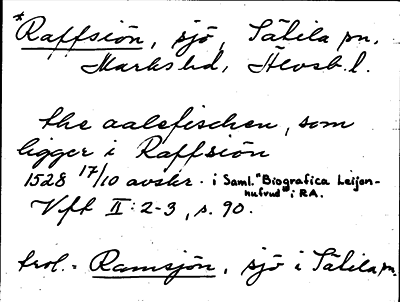 *Raffsiön, sjö, Sätila sn.
Marks hd, Älvsb. l.
the aalefischen, som
ligger i Raffsiön
1528 17/10 avskr. i Saml. "Biografica Leijon-
hufvud" i RA.
Vft II: 2-3, s. 90.
trol. = Ramsjön, sjö i Sätila sn.